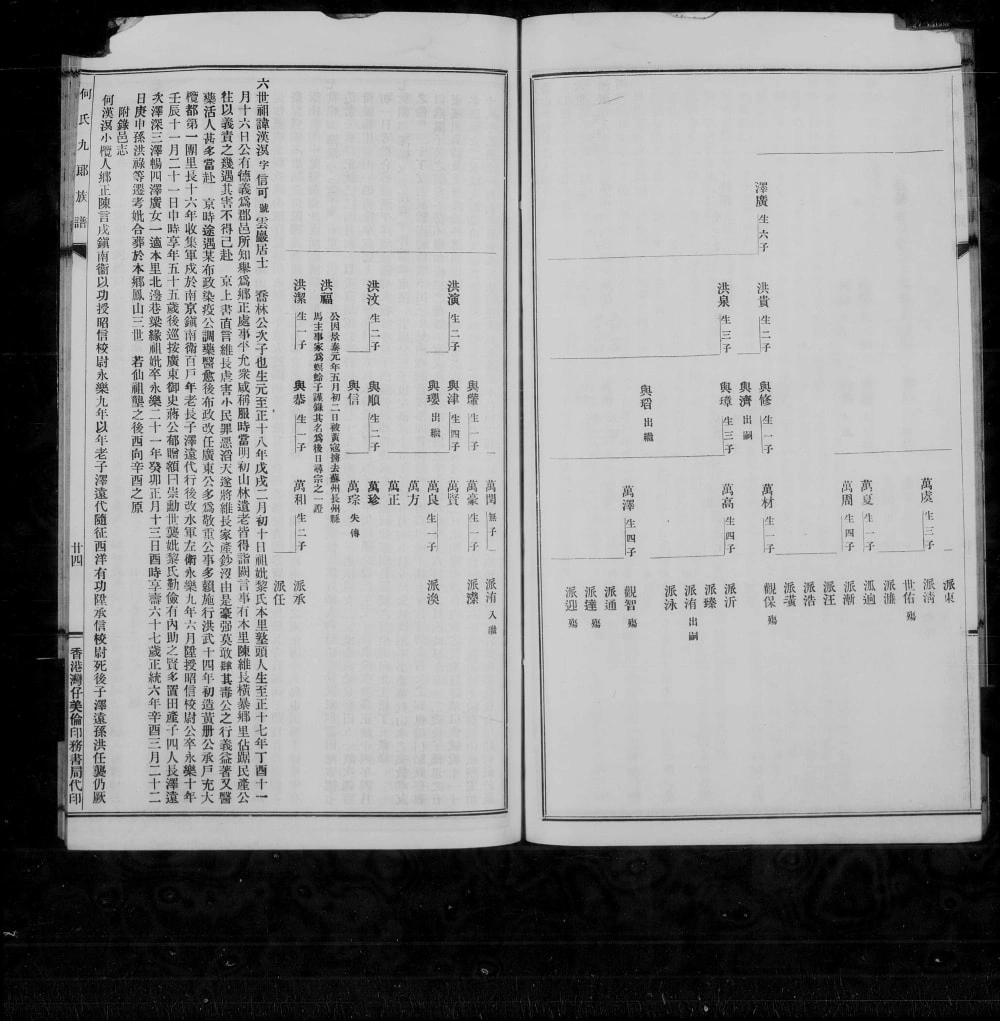 澤廣 生六子
洪貴 生二子
洪泉 生三子
與修 生一子
與濟 出嗣
與璋 生三子
與瑫 出繼
萬成 生三子
萬夏 生一子
萬周 生四子
萬材 生一子
萬高 生四子
萬澤 生四子
派東
派淸
世佑 殤
派濂
派適
派漸
派汪
派浩
派璜
觀保 殤
派沂
派臻
派洧 出嗣
派泳
觀智 殤
派通
派達 殤
派迎 殤
洪演 生二子
洪汶 生二子
洪福 公因景泰元年五月初二日被黃寇擄去蘇州長州縣
馬主事家爲螟蛉子謹錄其名爲後日尋宗之一證
洪潔 生一子
與津 生四子
與瓔 出繼
與順 生二子
與信
與恭 生一子
萬閏 無子
萬豪 生一子
萬賢
萬良 生一子
萬方
萬正
萬珍
萬琮 失傳
萬和 生二子
派洧 入繼
派渙
派承
派任
六世祖諱漢溟字信可號雲巖居士 喬林公次子也生元至正十八年戊戌二月初十日祖妣黎氏本里塾頭人生至正十七年丁酉十一
月十六日公有德義爲郡邑所知舉爲鄉正處事平允衆咸稱服時當明初山林遺老皆得詣闕言事有本里陳維長橫暴鄉里佔踞民產公
往以義責之幾遇其害不得已赴 京上書直言維長虐害小民罪惡滔天遂將維長家產鈔沒由是豪强莫敢肆其毒公之行義益著又醫
藥活人甚多當赴 京時途遇某布政染疫公調藥醫愈後布政改任廣東公多爲敬重公事多賴施行洪武十四年初造黃册公承戶充大
欖都第一圖里長十六年收集軍戍於南京鎭南衞百戶年老長子澤遠代行後改水軍左衞永樂九年六月陞授昭信校尉公卒永樂十年
壬辰十一月二十一日申時享年五十五歲後巡按廣東御史蔣公郁贈額曰崇勳世襲妣黎氏勤儉有內助之賢多置田產子四人長澤遠
次澤深三澤暢四澤廣女一適本里北邊巷梁緣祖妣卒永樂二十一年癸卯正月十三日酉時享壽六十七歲正統六年辛酉三月二十二
日庚申孫洪祿等遷考妣合葬於本鄉鳳山三世 若仙祖壟之後酉向辛酉之原
附錄邑志
何漢溟小欖人鄉正陳言戍鎭南衞以功授昭信校尉永樂九年以年老子澤遠代隨征西洋有功陞承信校尉死後子澤遠孫洪任襲仍厥
何氏九郎族譜
廿四
香港灣仔美倫印務書局代印